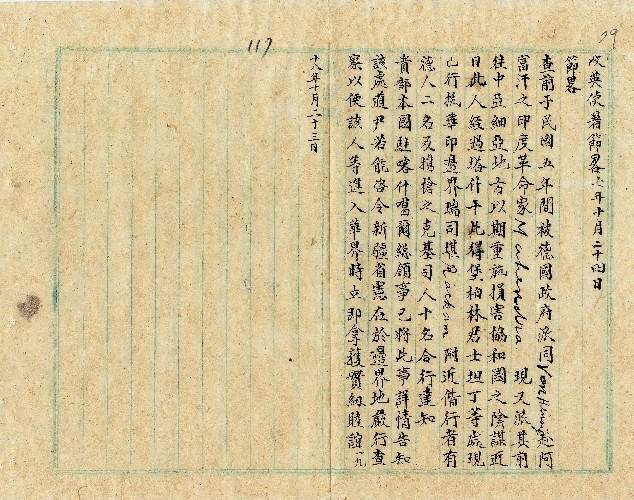 117
29
收英使署節畧 七年十月二十四日
節畧
查前于民國五年間被德國政府派同Von Hinig赴阿
富汗之印度革命家Mahendra 現又派其前
往中亞細亞地方以期重施損害協和國之陰謀近
日此人經過塔什干比得堡柏林君士坦丁等處現
已行抵華印邊界瑞司堪 附近偕行者有
德人二名及携槍之克基司人十名合行達知
貴部本國駐喀什噶爾總領事已將此事詳情告知
該處道尹若能咨令新疆省憲在於疆界地嚴行查
察以便該人等進入華界時立即拿獲實紉睦誼 一九
十八年十月二十三日